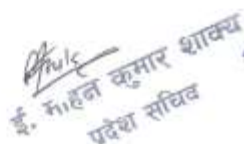 ई. मोहन कुमार शाक्य
प्रदेश सचिव